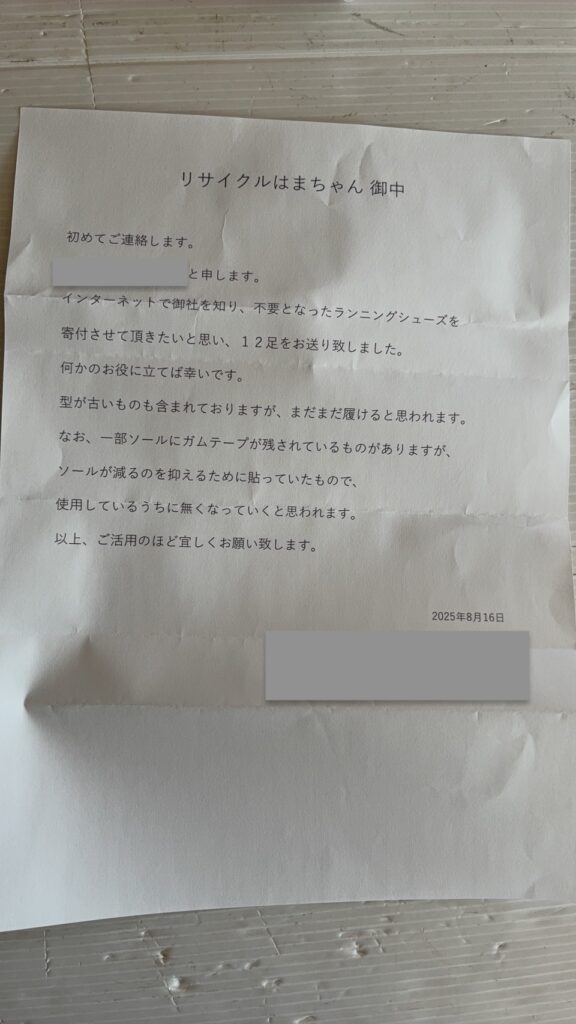 リサイクルはまちゃん 御中
初めてご連絡します。
と申します。
インターネットで御社を知り、不要となったランニングシューズを
寄付させて頂きたいと思い、１２足をお送り致しました。
何かのお役に立てば幸いです。
型が古いものも含まれておりますが、まだまだ履けると思われます。
なお、一部ソールにガムテープが残されているものがありますが、
ソールが減るのを抑えるために貼っていたもので、
使用しているうちに無くなっていくと思われます。
以上、ご活用のほど宜しくお願い致します。
2025年8月16日